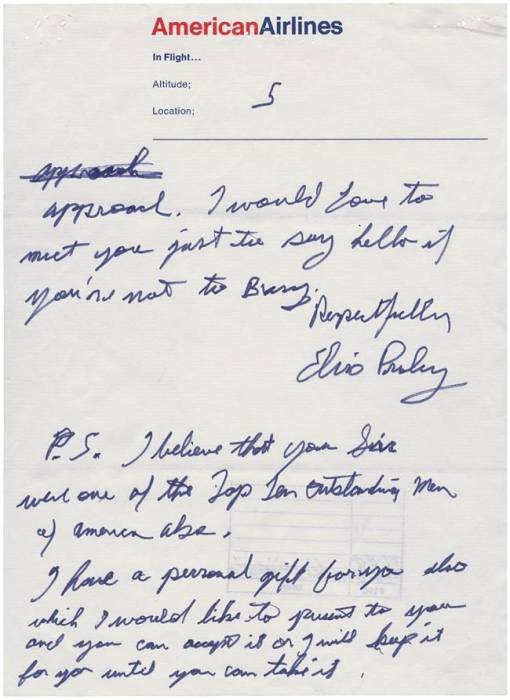 AmericanAirlines
In Flight...
Altitude;
Location;
5
approach
approach. I would Love to
meet you just to say hello if
you're not to Busy.
Respectfully
Elvis Presley
P.S. I believe that you Sir
were one of the Top Ten outstanding Men
of America also.
I have a personal gift for you also
which I would like to present to you
and you can accept it or I will keep it
for you until you can take it.